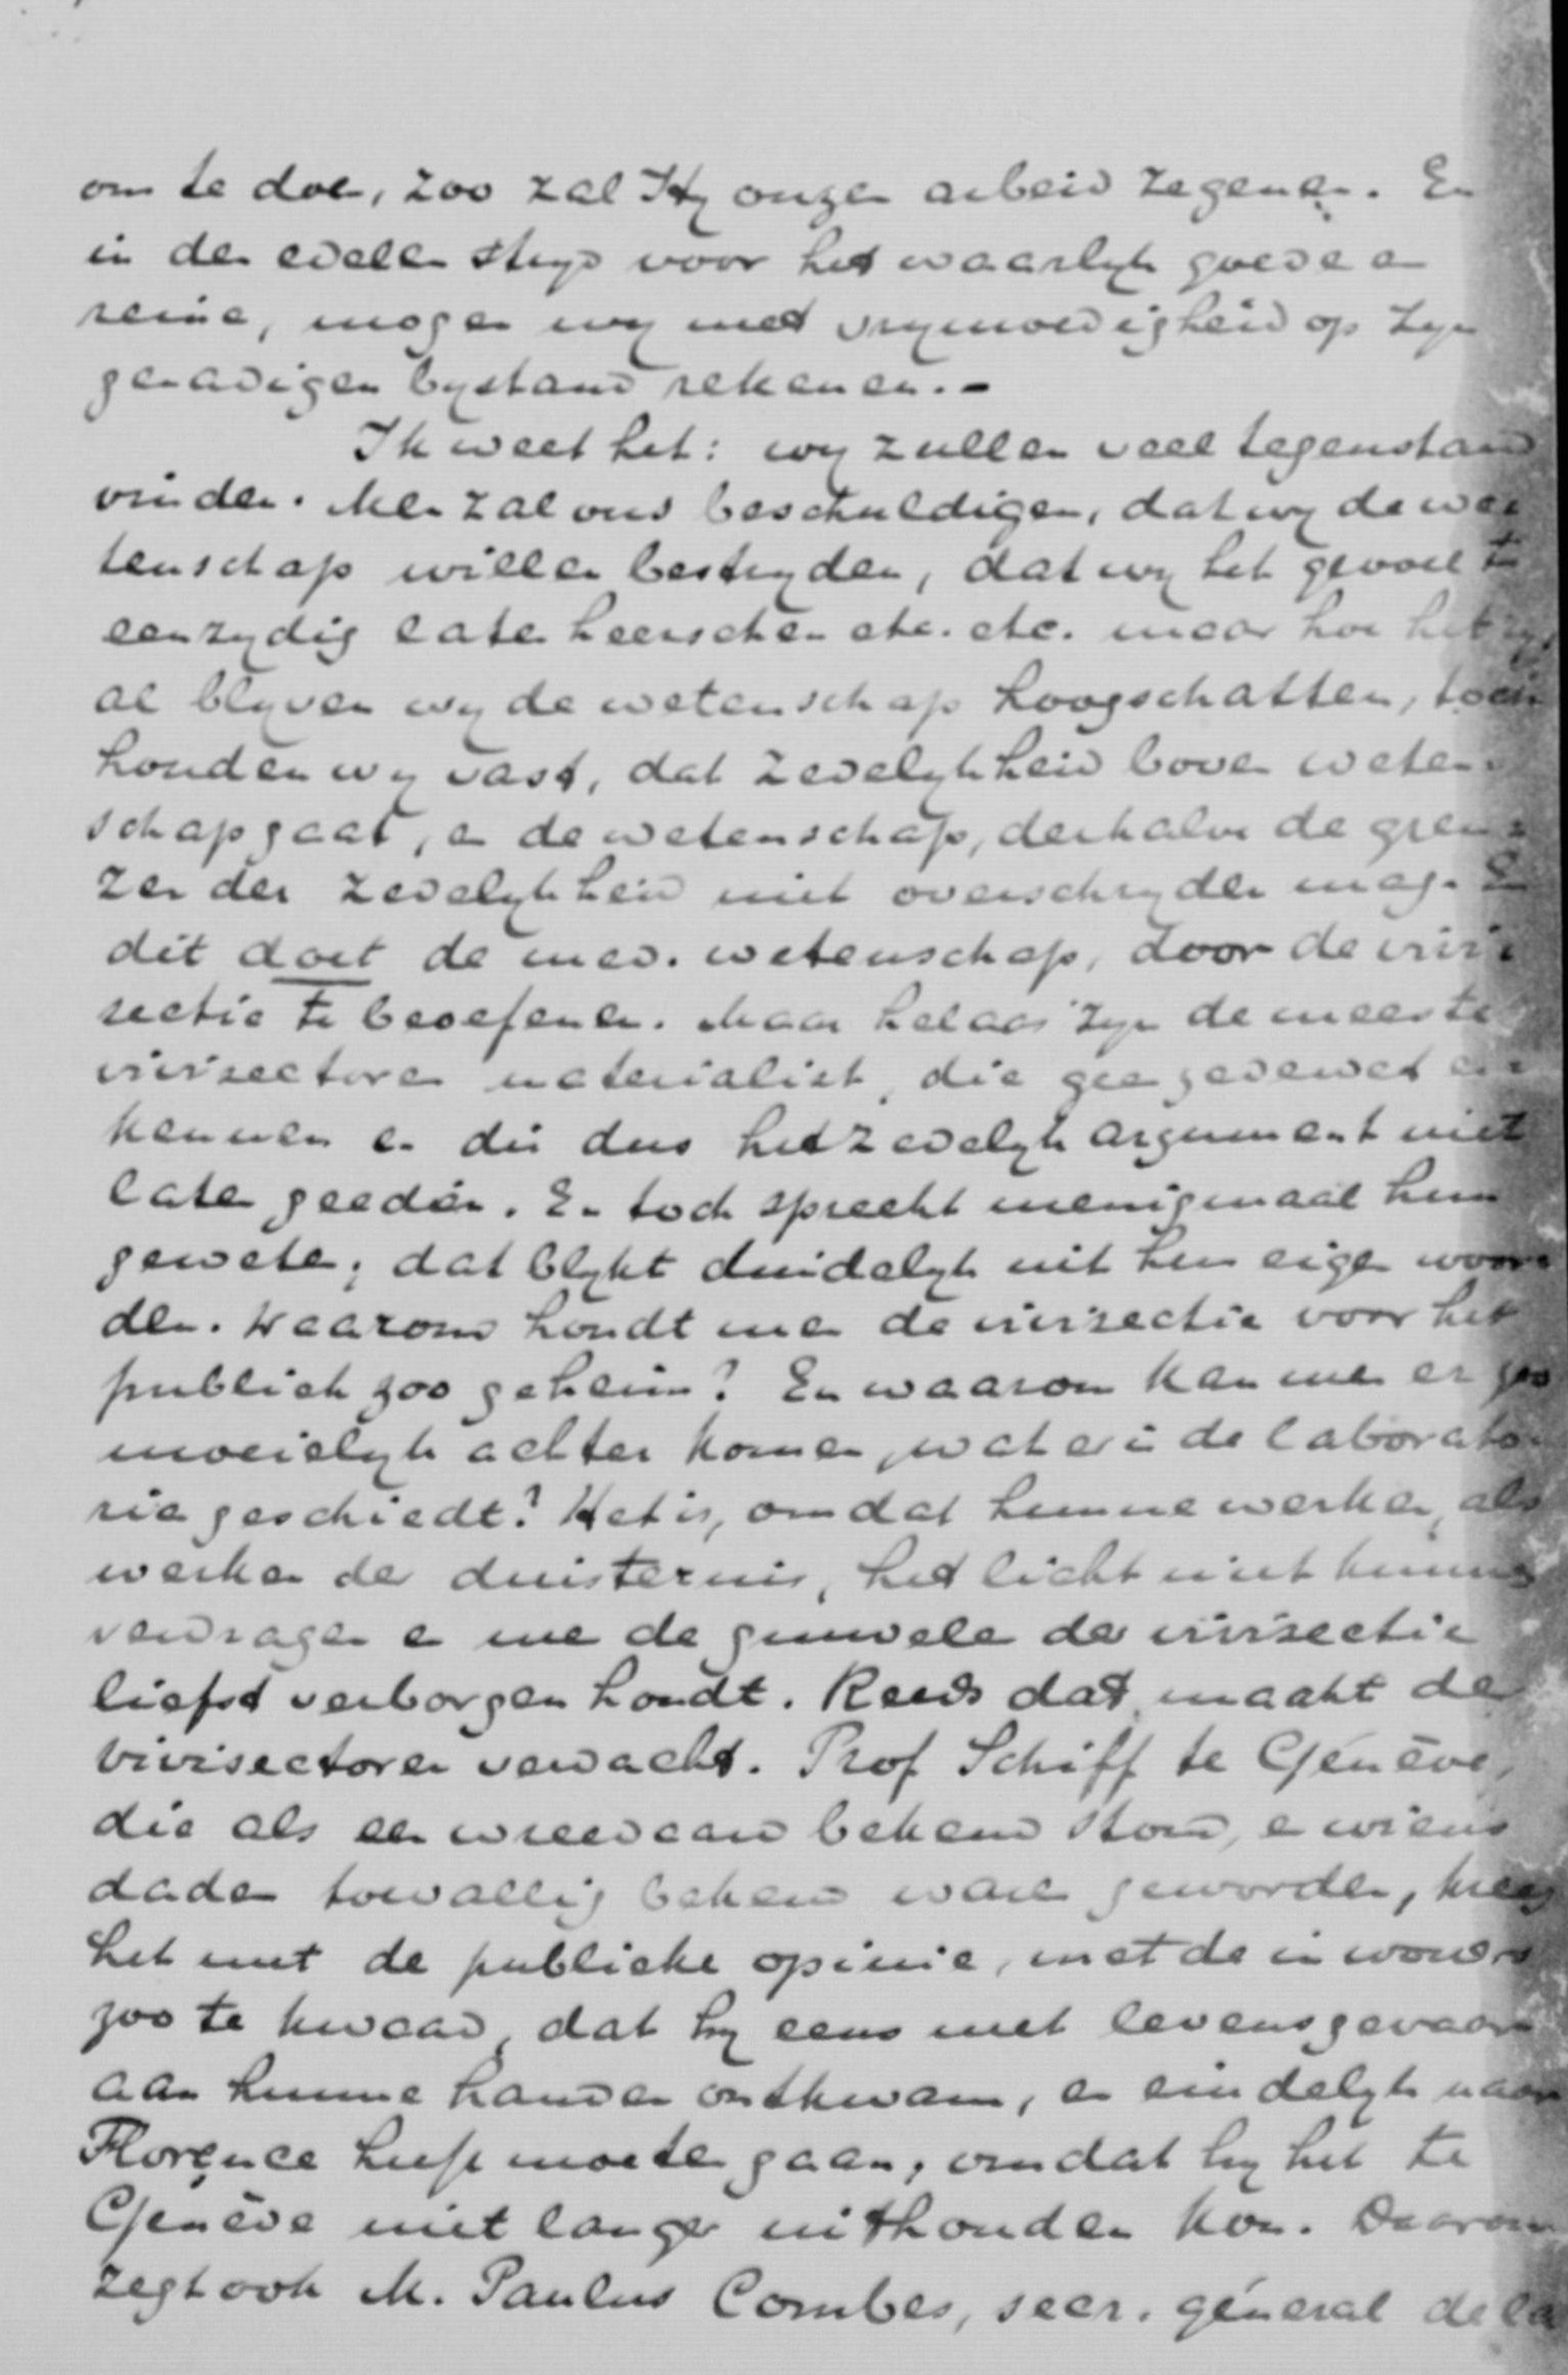 om te doen, zoo zal Hij onzen arbeid zegenen. En
in den edelen strijd voor het waarlijk goede en
reine, mogen wij met vrijmoedigheid op Zijn
genadigen bijstand rekenen.-
Ik weet het: wij zullen veel tegenstand
vinden. Men zal ons beschuldigen, dat wij de we
tenschap willen bestrijden, dat wij het gevoel te
eenzijdig laten heerschen etc. etc. maar hoe het zij,
al blijven wij de wetenschap hoogschatten, toch
houden wij vast, dat zedelijkheid boven weten-
schap gaat, en de wetenschap, derhalve de gren-
zen der zedelijkheid niet overschrijden mag. En
dit doet de med. wetenschap, door de vivi-
sectie te beoefenen. Maar helaas zijn de meeste
vivisectoren materialist, die geen zedewet er-
kennen en die dus het zedelijk argument niet
laten gelden. En toch spreekt menigmaal hun
geweten; dat blijkt duidelijk uit hun eigen woor-
den. Waarom houdt men de vivisectie voor het
publiek zoo geheim? En waarom kan men er zoo
moeielijk achter komen, wat er in de laborato-
ria geschiedt? Het is, omdat hunne werken, als
werken der duisternis, het licht niet kunnen
verdragen en men de gruwelen der vivisectie
liefst verborgen houdt. Reeds dat maakt de
vivisectoren verdacht. Prof Schiff te Genève,
die als een wreedaard bekend stond, en wiens
daden toevallig bekend waren geworden, kreeg
het met de publieke opinie, met de inwoners
zoo te kwaad, dat hij eens met levensgevaar
aan hunne handen ontkwam, en eindelijk naar
Florence heeft moeten gaan, omdat hij het te
Genève niet langer uithouden kon. Daarom
zegt ook M. Paulus Combes, secr. général de la